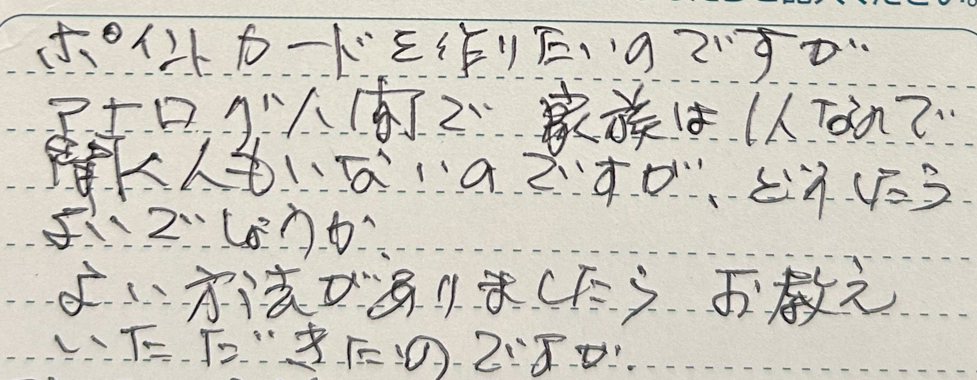 ポイントカードを作りたいのですが
アナログ人間で 家族は1人なので
聞く人もいないのですが、どうしたら
よいでしょうか、
よい方法がありましたら お教え
いただきたいのですが。